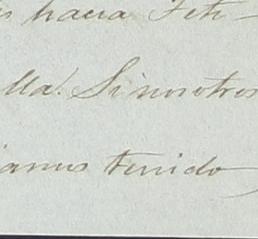 s hacia Feti-
lla. Si nosotros
iamos tenido